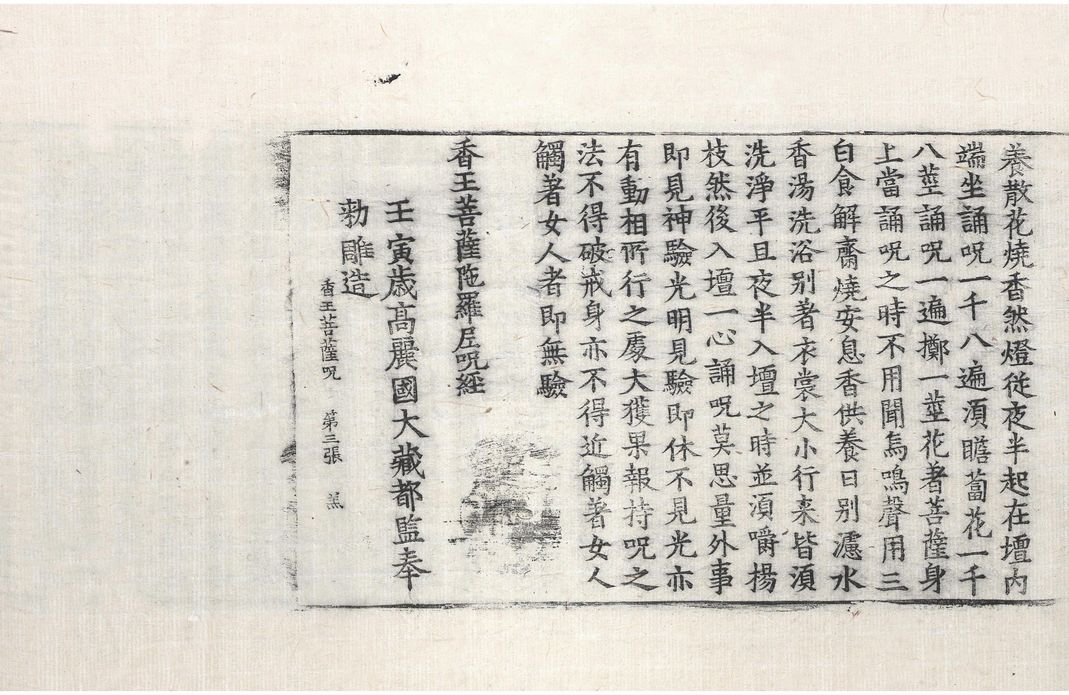 養散花燒香然燈從夜半起在壇內
端坐誦呪一千八遍須瞻蔔花一千
八莖誦呪一遍擲一莖花著菩薩身
上當誦呪之時不用聞鳥鳴聲用三
白食解齋燒安息香供養日別濾水
香湯洗浴別著衣裳大小行来皆須
洗淨平旦夜半入壇之時並須嚼楊
枝然後入壇一心誦呪莫思量外事
即見神驗光明見驗即休不見光亦
有動相所行之處大獲果報持呪之
法不得破戒身亦不得近觸著女人
觸著女人者即無驗
香王菩薩陁羅尼呪経
壬寅歳高麗國大藏都監奉
勅雕造
香王菩薩呪 第三張 羔